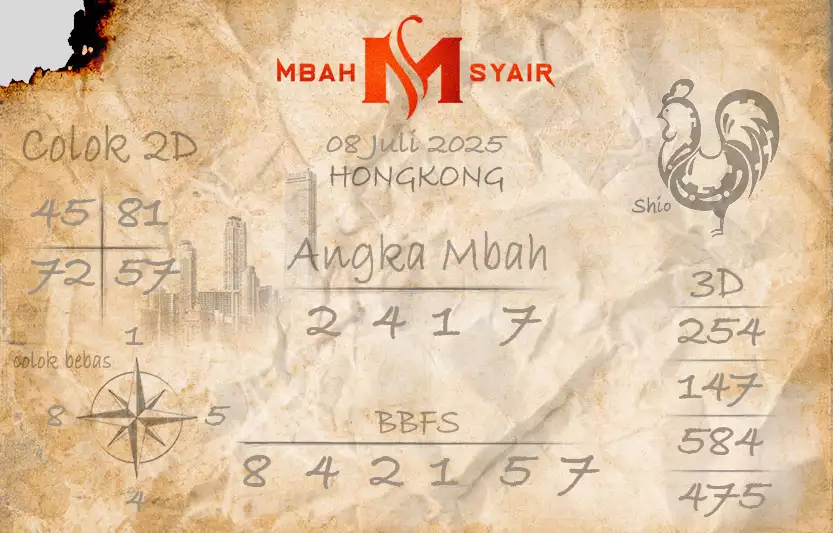 MBAH M SYAIR
08 Juli 2025
HONGKONG
Colok 2D
45 81
72 57
Shio
Angka Mbah
2 4 1 7
3D
254
147
584
475
colok bebas
1
8 5
4
BBFS
8 4 2 1 5 7